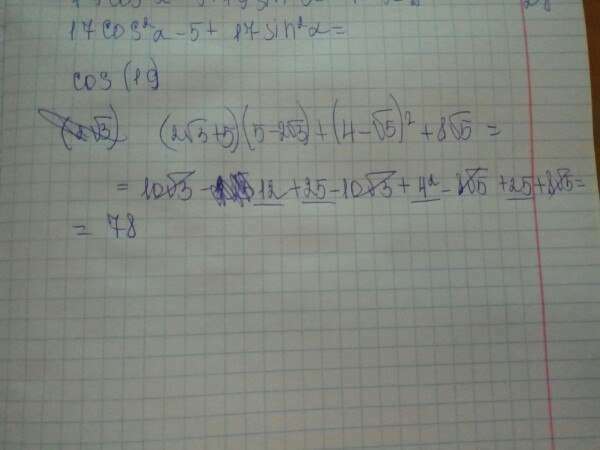 17cos²α - 5 + 17sin²α =
cos (19)
(2√3) (2√3+5)(5-2√3)+(4-√5)²+8√5 =
= 10√3 - 12 + 25 - 10√3 + 4² - 8√5 + 25 + 8√5 =
= 78